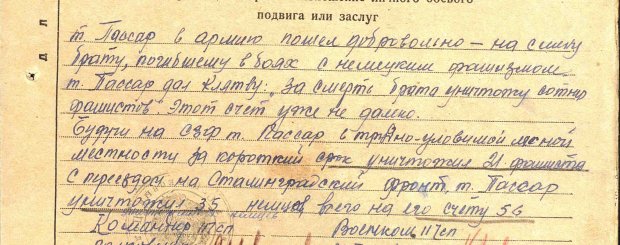 подвига или заслуг
т. Пассар в армию пошел добровольно – на смену
брату, погибшему в боях с немецким фашизмом.
т. Пассар дал клятву: „За смерть брата уничтожу сотню
фашистов". Этот счет уже не далеко.
Будучи на СЗФ т. Пассар в трудно-уловимой лесной
местности за короткий срок уничтожил 21 фашиста
С переездом на Сталинградский фронт, т. Пассар
уничтожил 35 немцев всего на его счету 56
немцев
Командир 117сп Военком 117сп